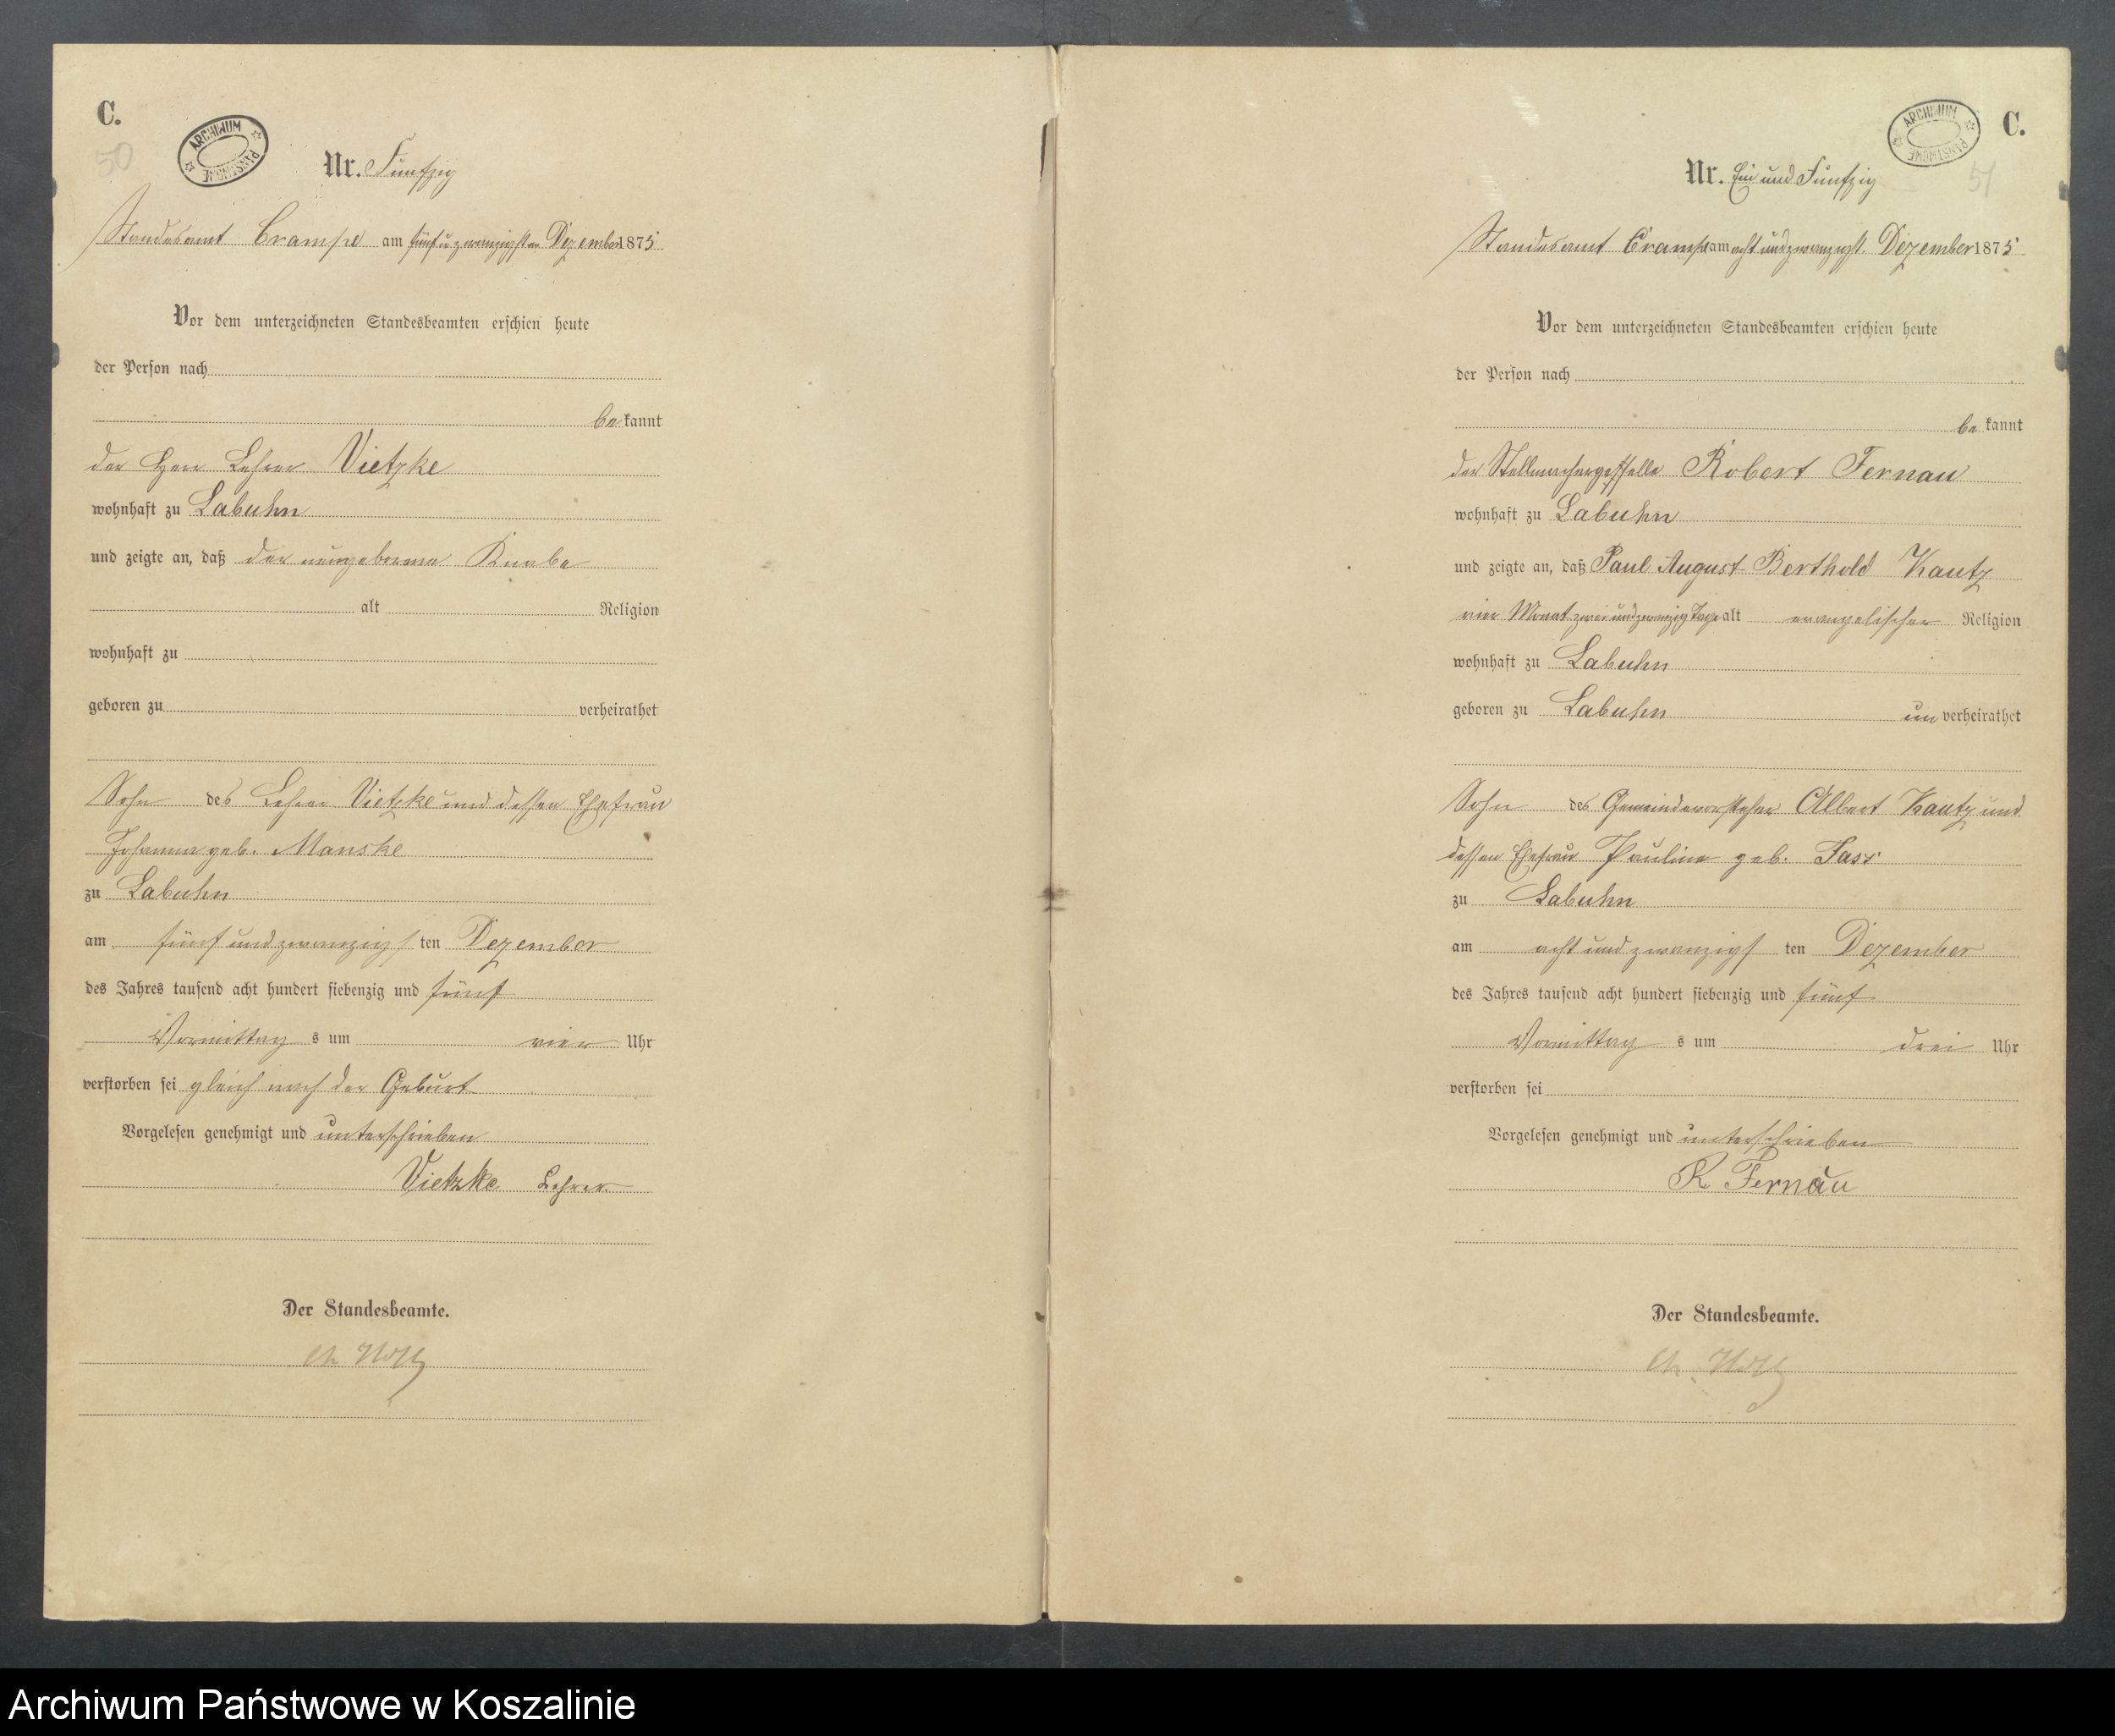 C.
50
ARCHIWUM PAŃSTWOWE
Nr. Fünfzig
Standesamt Crampe am fünf u zwanzigsten Dezember 1875
Vor dem unterzeichneten Standesbeamten erschien heute
der Person nach
bekannt
der Herr Lehrer Vietzke
wohnhaft zu Labuhn
und zeigte an, daß der neugeborene Knabe
alt Religion
wohnhaft zu
geboren zu verheirathet
Sohn des Lehrer Vietzke und dessen Ehefrau
Johanna geb. Manske
zu Labuhn
am fünf und zwanzigsten Dezember
des Jahres tausend acht hundert siebenzig und fünf
Vormittags um vier Uhr
verstorben sei gleich nach der Geburt
Vorgelesen genehmigt und unterschrieben
Vietzke Lehrer
Der Standesbeamte.
C.
51
ARCHIWUM PAŃSTWOWE
Nr. Ein und Fünfzig
Standesamt Crampe am acht und zwanzigst. Dezember 1875
Vor dem unterzeichneten Standesbeamten erschien heute
der Person nach
bekannt
der Stellmachergeselle Robert Fernau
wohnhaft zu Labuhn
und zeigte an, daß Paul August Berthold Kautz
vier Monat zwei und zwanzig Tage alt evangelischer Religion
wohnhaft zu Labuhn
geboren zu Labuhn unverheirathet
Sohn des Gemeindevorsteher Albert Kautz und
dessen Ehefrau Pauline geb. Fass
zu Labuhn
am acht und zwanzigsten Dezember
des Jahres tausend acht hundert siebenzig und fünf
Vormittags um drei Uhr
verstorben sei
Vorgelesen genehmigt und unterschrieben
R. Fernau
Der Standesbeamte.
Archiwum Państwowe w Koszalinie